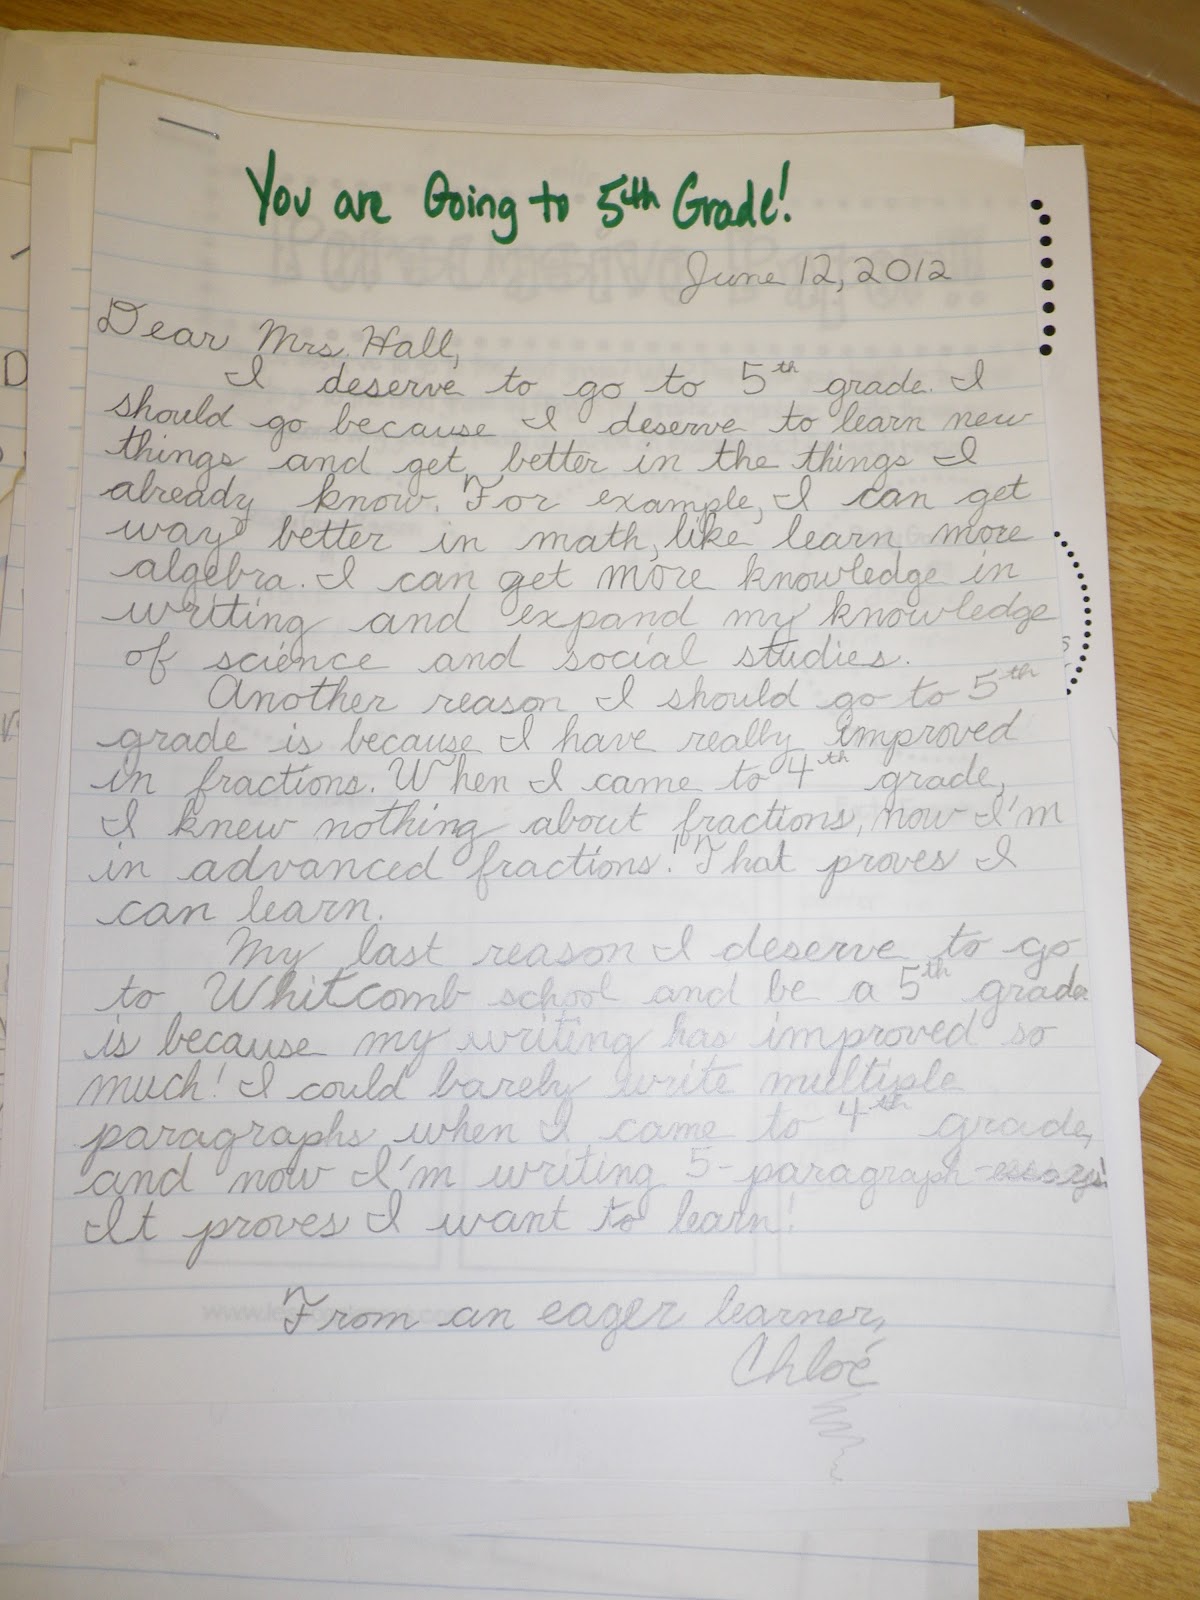 You are Going to 5th Grade!
June 12, 2012
Dear Mrs. Hall,
I deserve to go to 5th grade. I
should go because I deserve to learn new
things and get better in the things I
already know. For example, I can get
way better in math, like learn more
algebra. I can get more knowledge in
writing and expand my knowledge
of science and social studies.
Another reason I should go to 5th
grade is because I have really improved
in fractions. When I came to 4th grade,
I knew nothing about fractions, now I'm
in advanced fractions! That proves I
can learn.
My last reason I deserve to go
to Whitcomb school and be a 5th grader
is because my writing has improved so
much! I could barely write multiple
paragraphs when I came to 4th grade,
and now I'm writing 5-paragraph-essays!
It proves I want to learn!
From an eager learner,
Chloé